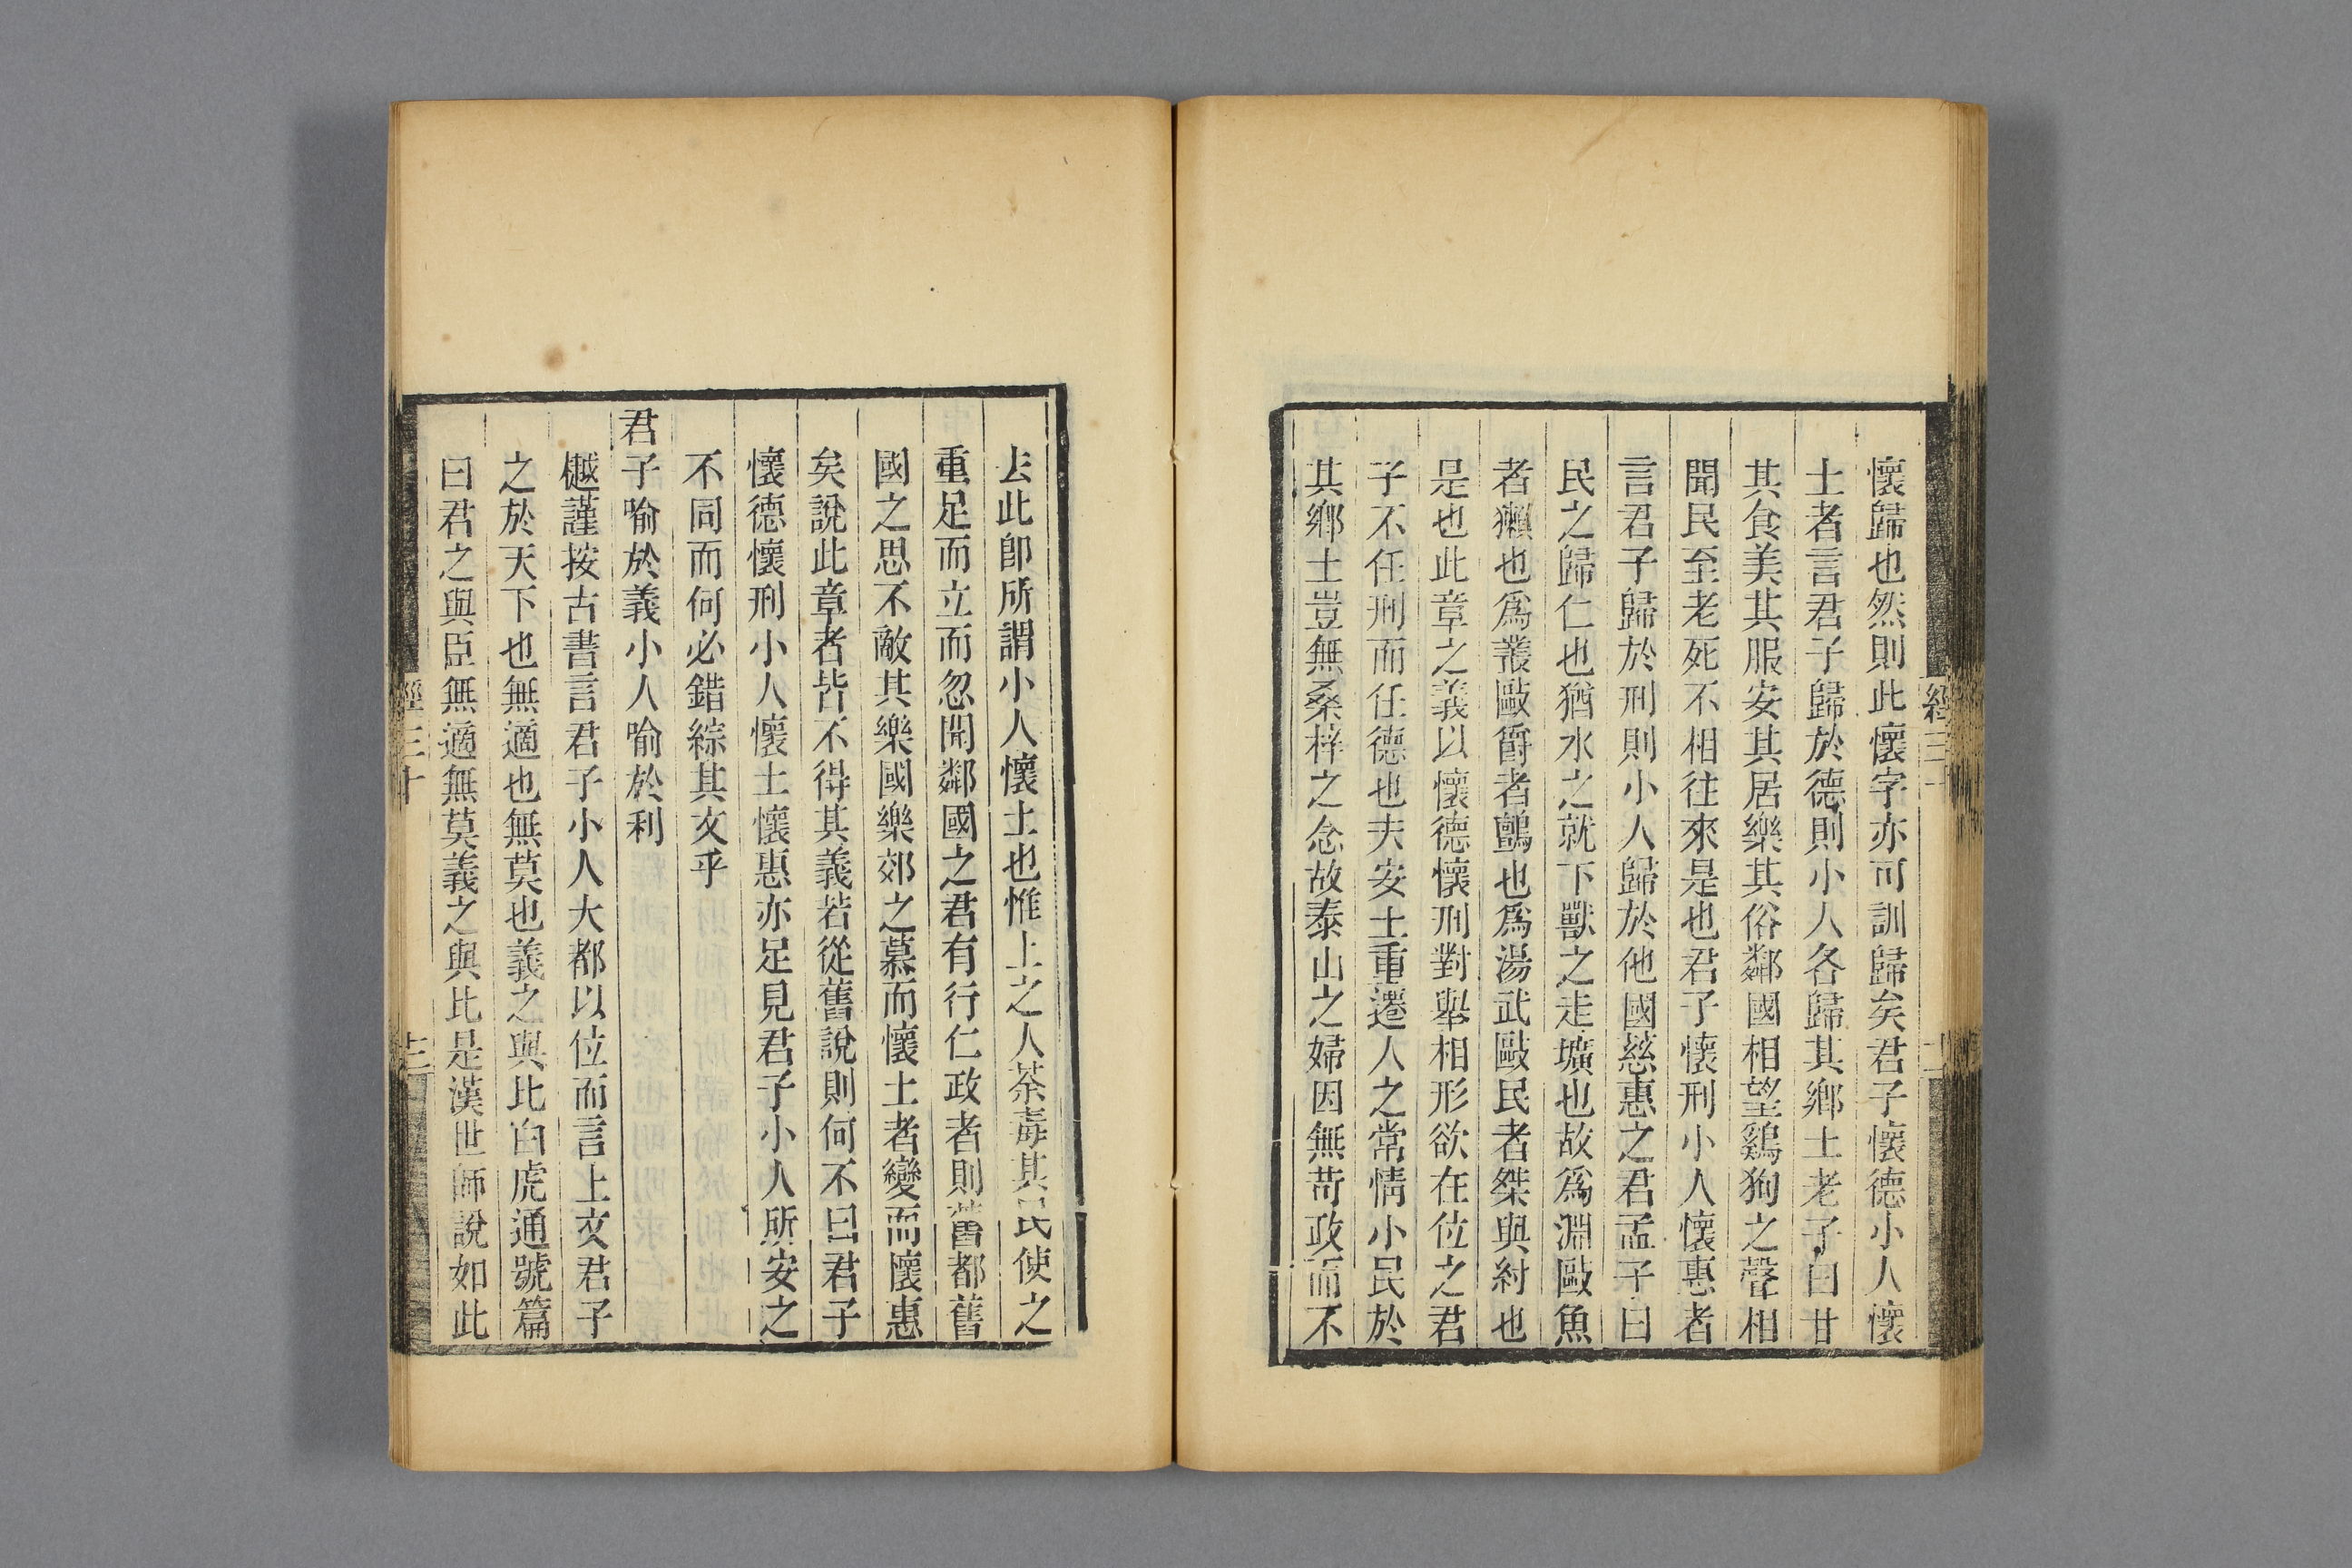 懷歸也然則此懷字亦可訓歸矣君子懷德小人懷
土者言君子歸於德則小人各歸其鄉土老子曰甘
其食美其服安其居樂其俗鄰國相望鷄狗之聲相
聞民至老死不相往來是也君子懷刑小人懷惠者
言君子歸於刑則小人歸於他國慈惠之君孟子曰
民之歸仁也猶水之就下獸之走壙也故爲淵敺魚
者獺也爲叢敺爵者鸇也爲湯武敺民者桀與紂也
是也此章之義以懷德懷刑對舉相形欲在位之君
子不任刑而任德也夫安土重遷人之常情小民於
其鄉土豈無桑梓之念故泰山之婦因無苛政而不
去此卽所謂小人懷土也惟上之人荼毒其民使之
重足而立而忽聞鄰國之君有行仁政者則舊都舊
國之思不敵其樂國樂郊之慕而懷土者變而懷惠
矣說此章者皆不得其義若從舊說則何不曰君子
懷德懷刑小人懷土懷惠亦足見君子小人所安之
不同而何必錯綜其文乎
君子喻於義小人喻於利
樾謹按古書言君子小人大都以位而言上文君子
之於天下也無適也無莫也義之與比白虎通號篇
曰君之與臣無適無莫義之與比是漢世師說如此
經三十